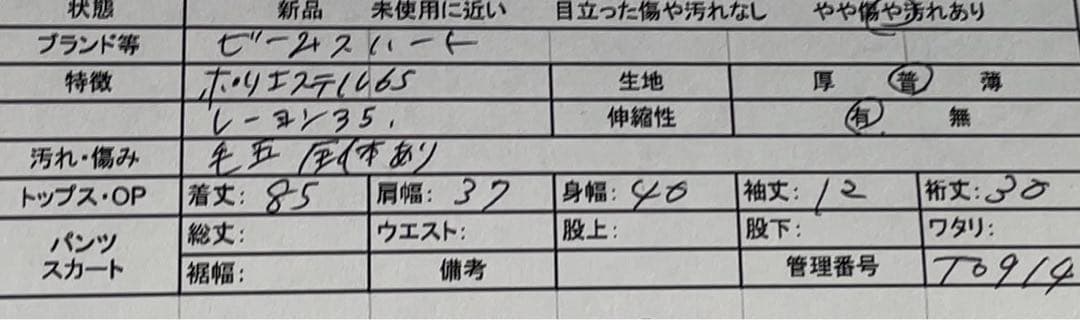 状態 新品 未使用に近い 目立った傷や汚れなし やや傷や汚れあり
ブランド等 ビームスハート
特徴 ポリエステル65 生地 厚 普 薄
レーヨン35. 伸縮性 有 無
汚れ・傷み 毛玉 全体あり
トップス・OP 着丈:85 肩幅:37 身幅:40 袖丈:12 裄丈:30
パンツ スカート
総丈: ウエスト: 股上: 股下: ワタリ:
裾幅: 備考 管理番号 T0914